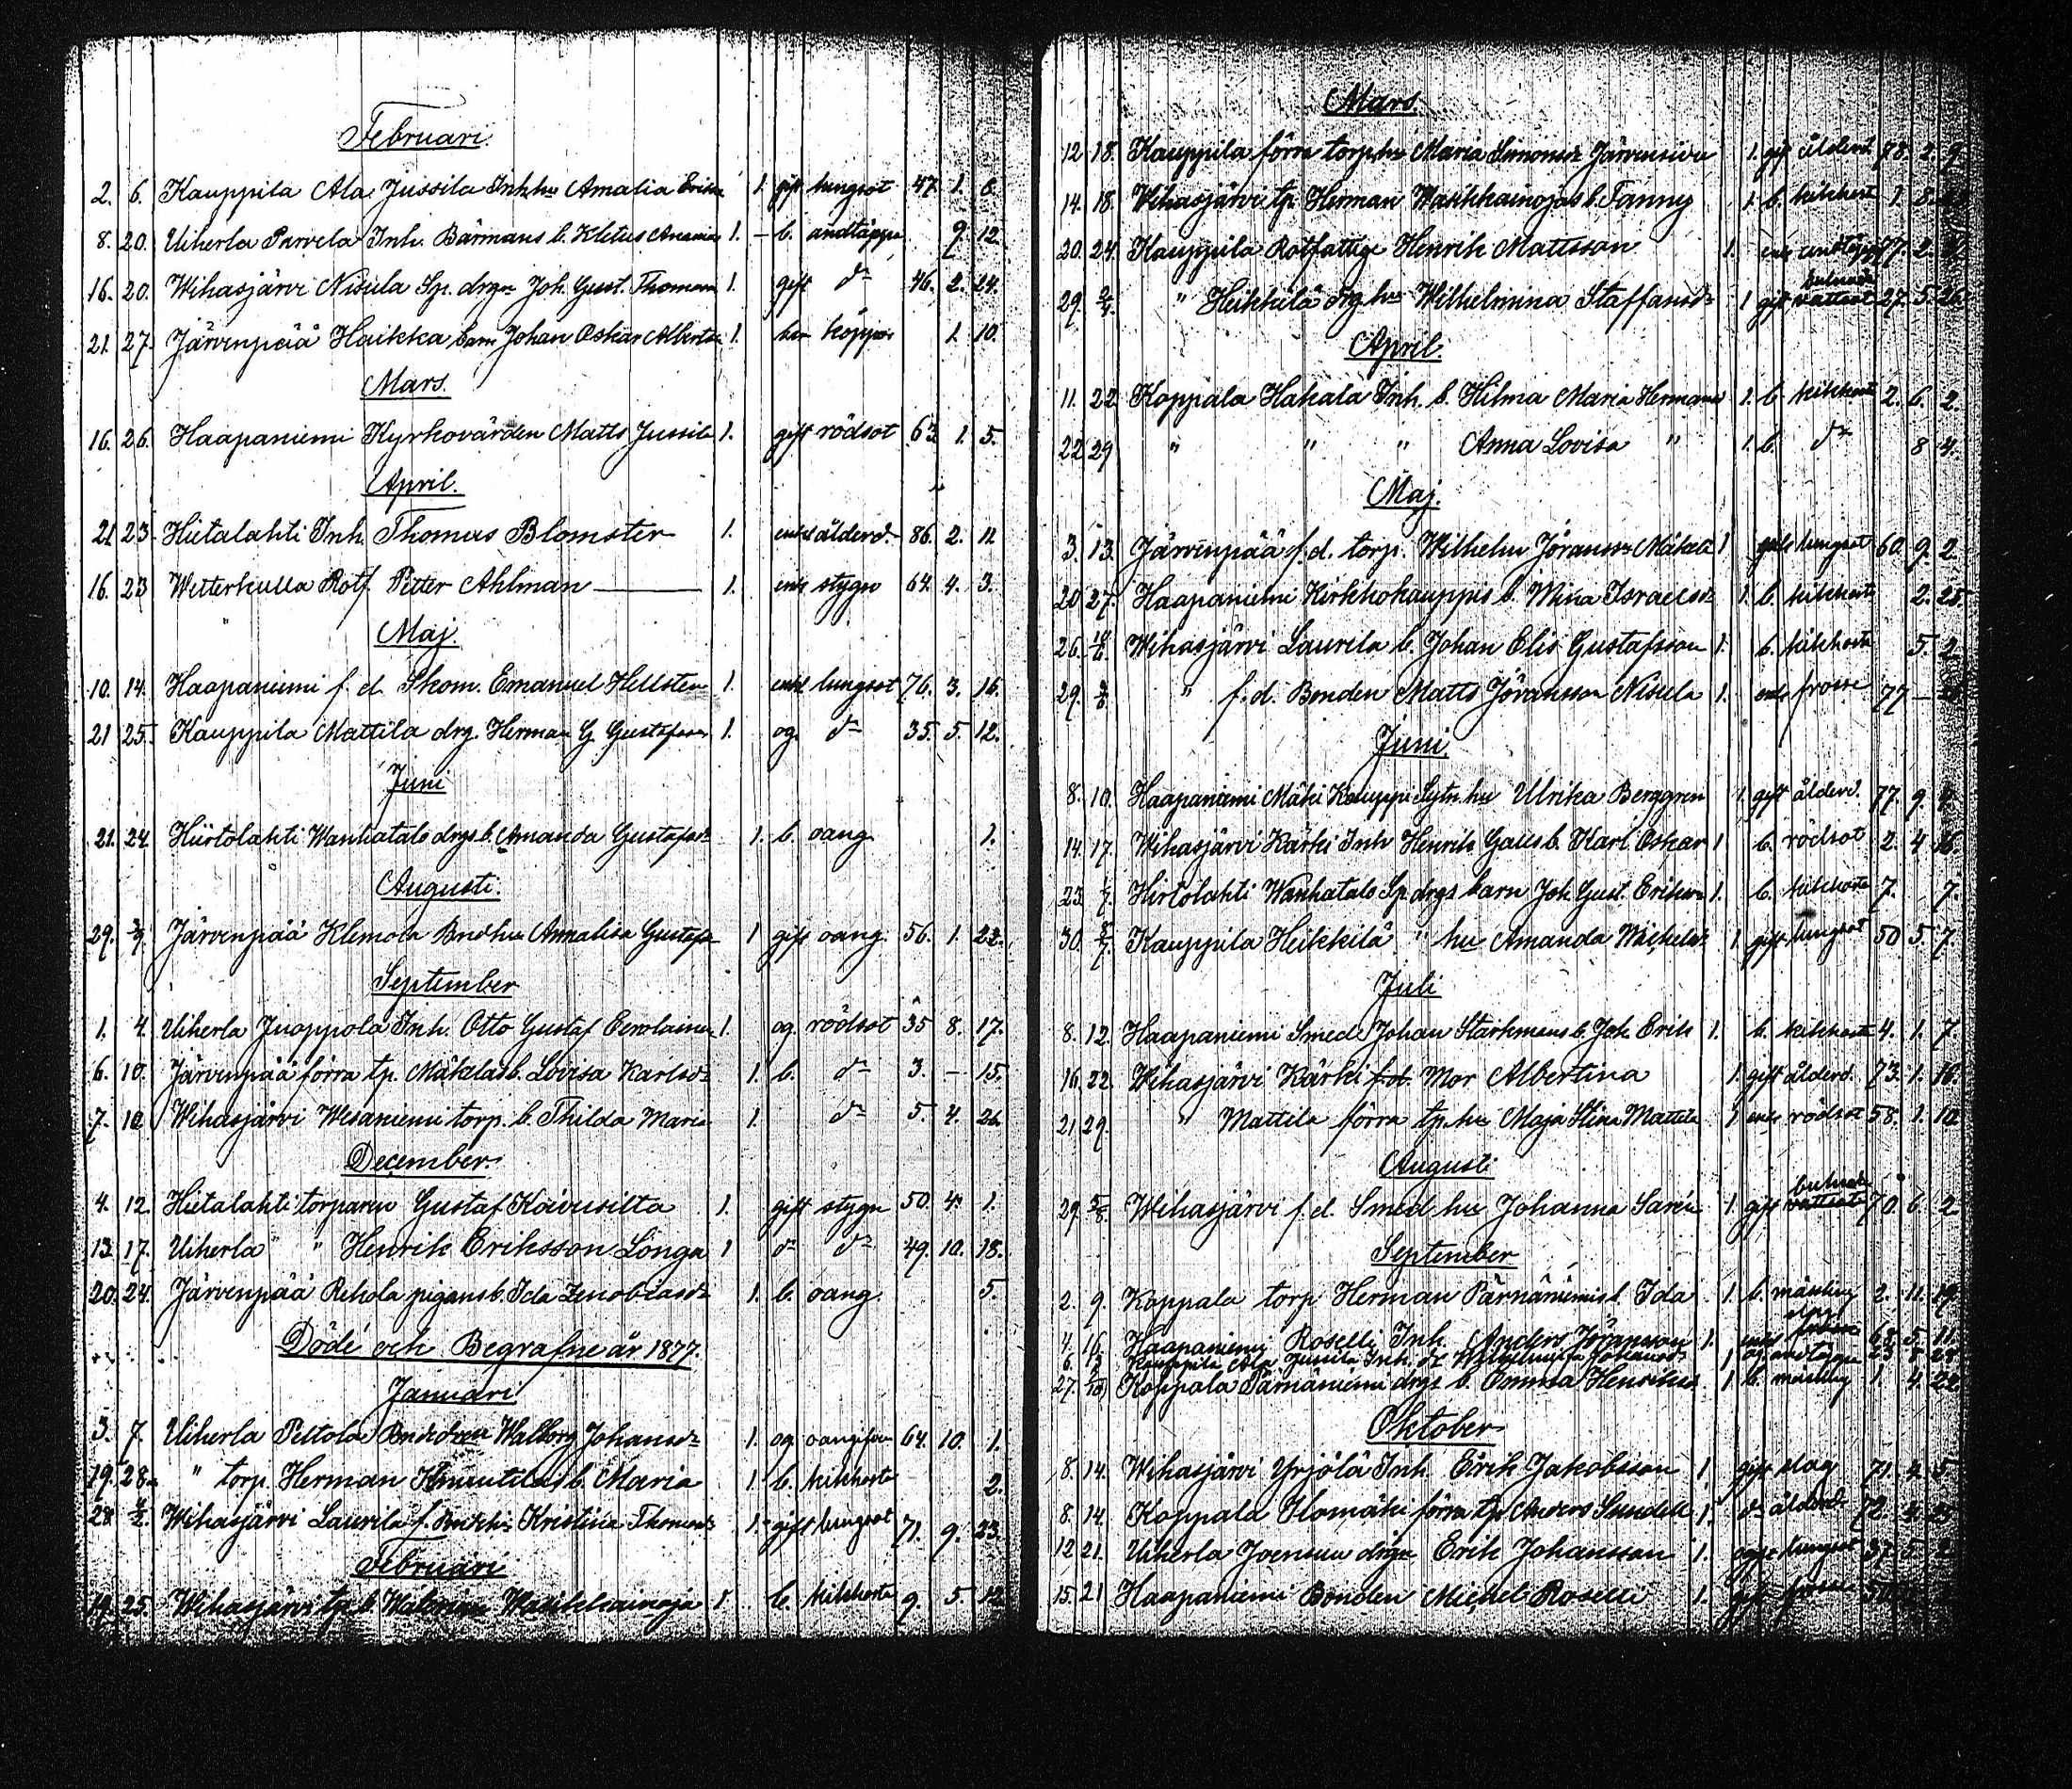 Februari.
2. 6. Kauppila Ala Jussila Inh hu Amalia Eriks 1. gift lungsot 47. 1. 6.
8. 20. Uiherla Parvela Inh. Bärmans b. Kletus Anania 1. – b. andtäppa 9. 12.
16. 20. Wihasjärvi Nisula Sp. drgn Joh. Gust. Thomass 1. gift dn 46. 2. 24.
21. 27. Järvenpää Haikka barn Johan Oskar Alberts 1. bar koppor 1. 10.
Mars.
16. 26. Haapaniemi Kyrkovärden Matts Jussila 1. gift rödsot 63. 1. 5.
April.
21 23. Hietalahti Inh. Thomas Blomster 1. enkl ålderd. 86. 2. 11
16. 23 Wetterkulla Rotf. Petter Ahlman 1. enk stygn 64. 4. 3.
Maj.
10. 14. Haapaniemi f. d. Skom. Emanuel Hellsten 1. enkl lungsot 76. 3. 16.
21 25. Kauppila Mattila drg. Herman G Gustafsson 1. og. dn 35. 5. 12.
Juni
21. 24. Hiirtolahti Wanhatalo drgs b. Amanda Gustafsdr 1. b. oang 1.
Augusti.
29. 2/9. Järvenpää Klemola Bndhu Annalisa Gustafs 1 gift oang. 56. 1. 22.
September
1. 4. Uiherla Juoppola Inh. Otto Gustaf Eerolainen 1. og. rödsot 35 8. 17.
6. 10. Järvenpää förra tp. Mäkelas b. Lovisa Karlsdr 1. b. dn 3. – 15.
7. 10 Wihasjärvi Wesaniemi torp. b. Thilda Maria 1. dn 5 4. 26
December.
4. 12. Hietalahti torparen Gustaf Koivusilta 1. gift stygn 50. 4. 1.
13. 17. Uiherla " Henrik Eriksson Länga 1 dn dn 49. 10. 18.
20. 24. Järvenpää Rekola pigans b. Ida Zenobiasdr 1. b. oang. 5.
Döde och Begrafne år 1877.
Januari
3. 7. Uiherla Peltola Walborg Johansdr 1. og oangifven 64. 10. 1.
19. 28. " torp. Herman Knuutilas b. Maria 1. b. kikhosta 2.
28 4/2. Wihasjärvi Laurila f. Kristina Thomasdr 1. gift lungsot 71. 9. 23.
Februari
19 25. Wihasjärvi tp. b Wasikkainoja 1 b. kikhosta 9. 5 12
Mars.
12 18. Kauppila förra torp.hu Maria Simonsdr Järvensivu 1. gift ålderd. 78. 2. 9.
14. 18. Wihasjärvi tp. Herman Wasikkainojas b. Fanny 1. b. kikhost 1. 8.
20. 24. Kauppila Rotfattige Henrik Mattsson 1. enk andtäppa 77. 2.
29. 2/4. " Heikkilä drg hu Wilhelmina Staffansdr 1 gift vattsot 27. 5. 26.
April.
11. 22 Koppala Hakala Inh. b. Hilma Maria Hermansd 1. b. kikhosta 2. 6. 2.
22 29 " " " Anna Lovisa " 1. b. dn 8 4.
Maj.
3. 13. Järvenpää f.d. torp. Wilhelm Jöransson Mäkelä 1 lungsot 60. 9. 2.
20 27. Haapaniemi Kirkkokauppis b. Mina Israelsdr 1. b. kikhosta 2. 25.
26. 10/6. Wihasjärvi Laurila b. Johan Elis Gustafsson 1. b. kikhosta 5. 2
29. 3/6 " f. d. Bonden Matts Jöransson Nisula 1. enk frossa 77 –
Juni
8. 10. Haapaniemi Mäki Kauppi Sytn.hu Ulrika Berggren 1. gift ålderd. 77. 9.
14. 17. Wihasjärvi Kärki Inh Henrik Galls b. Karl Oskar 1 b. rödsot 2. 4 16.
23. 1/7. Hirtolahti Wanhatalo Sp. drgs barn Joh. Gust. Eriksson 1. b. kikhosta 7. 7.
30. 8/7. Kauppila Heikkilä " hu Amanda Michelsdr 1. gift lungsot 50 5. 7.
Juli
8. 12. Haapaniemi Smed Johan Starkmans b. Joh. Erik 1. b. kikhosta 4. 1. 7.
16. 22. Wihasjärvi Kärki f.d. Mor Albertina 1. gift ålderd. 73. 1. 16.
21 29. " Mattila förra tp.hu Maja Stina Mattila 1 enk rödsot 58. 1. 10.
Augusti
29. Wihasjärvi f. d. Smed hu Johanna Sarén 1. gift vattsot 70. 6. 2
September
2. 9. Koppala torp Herman Pärnäniemis b. Ida 1. b. mässling 2. 11. 19.
4. 16. Haapaniemi Roselli Inh. Anders Jöransson 1. slag 68. 5. 11.
6. Kauppila Ala Jussila Inh. dr Wilhelmina Johansdr 1 andtäppa
27. Koppala Pärnäniemi drgs b. Emma Henriksd 1 b. mässling 1. 4. 22
Oktober
8. 14. Wihasjärvi Yrjölä Inh. Erik Jakobsson 1 gift slag 71. 4. 5
8. 14. Koppala Ilomäki förra tp. Anders Sundell 1. dn ålderd. 72. 4. 25
12 21. Uiherla Joensuu drgn Erik Johansson 1. lungsot 37. 5. 2
15. 21 Haapaniemi Bonden Michel Roselli 1. gift frossa